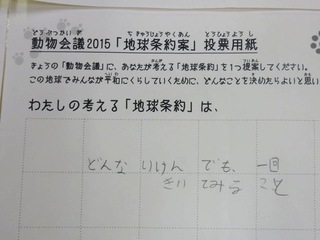 どうぶつかいぎ ちきゅうじょうやくあん とうひょうようし
動物会議2015「地球条約案」投票用紙
きょうの「動物会議」に、あなたが考える「地球条約」を1つ提案してください。
この地球でみんなが平和にくらしていくために、どんなことを決めたらよいと思い
わたしの考える「地球条約」は、
どんな りけん でも、一回
きいてみること